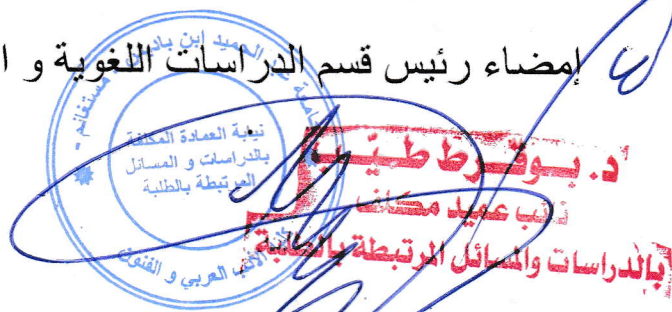 إمضاء رئيس قسم الدراسات اللغوية و
الحميد ابن باديس مستغانم -
نيابة العمادة المكلفة
بالدراسات و المسائل
المرتبطة بالطلبة
الأدب العربي و الفنون
د. بوقرط طيب
نائب عميد مكلف
بالدراسات والمسائل المرتبطة بالطلبة